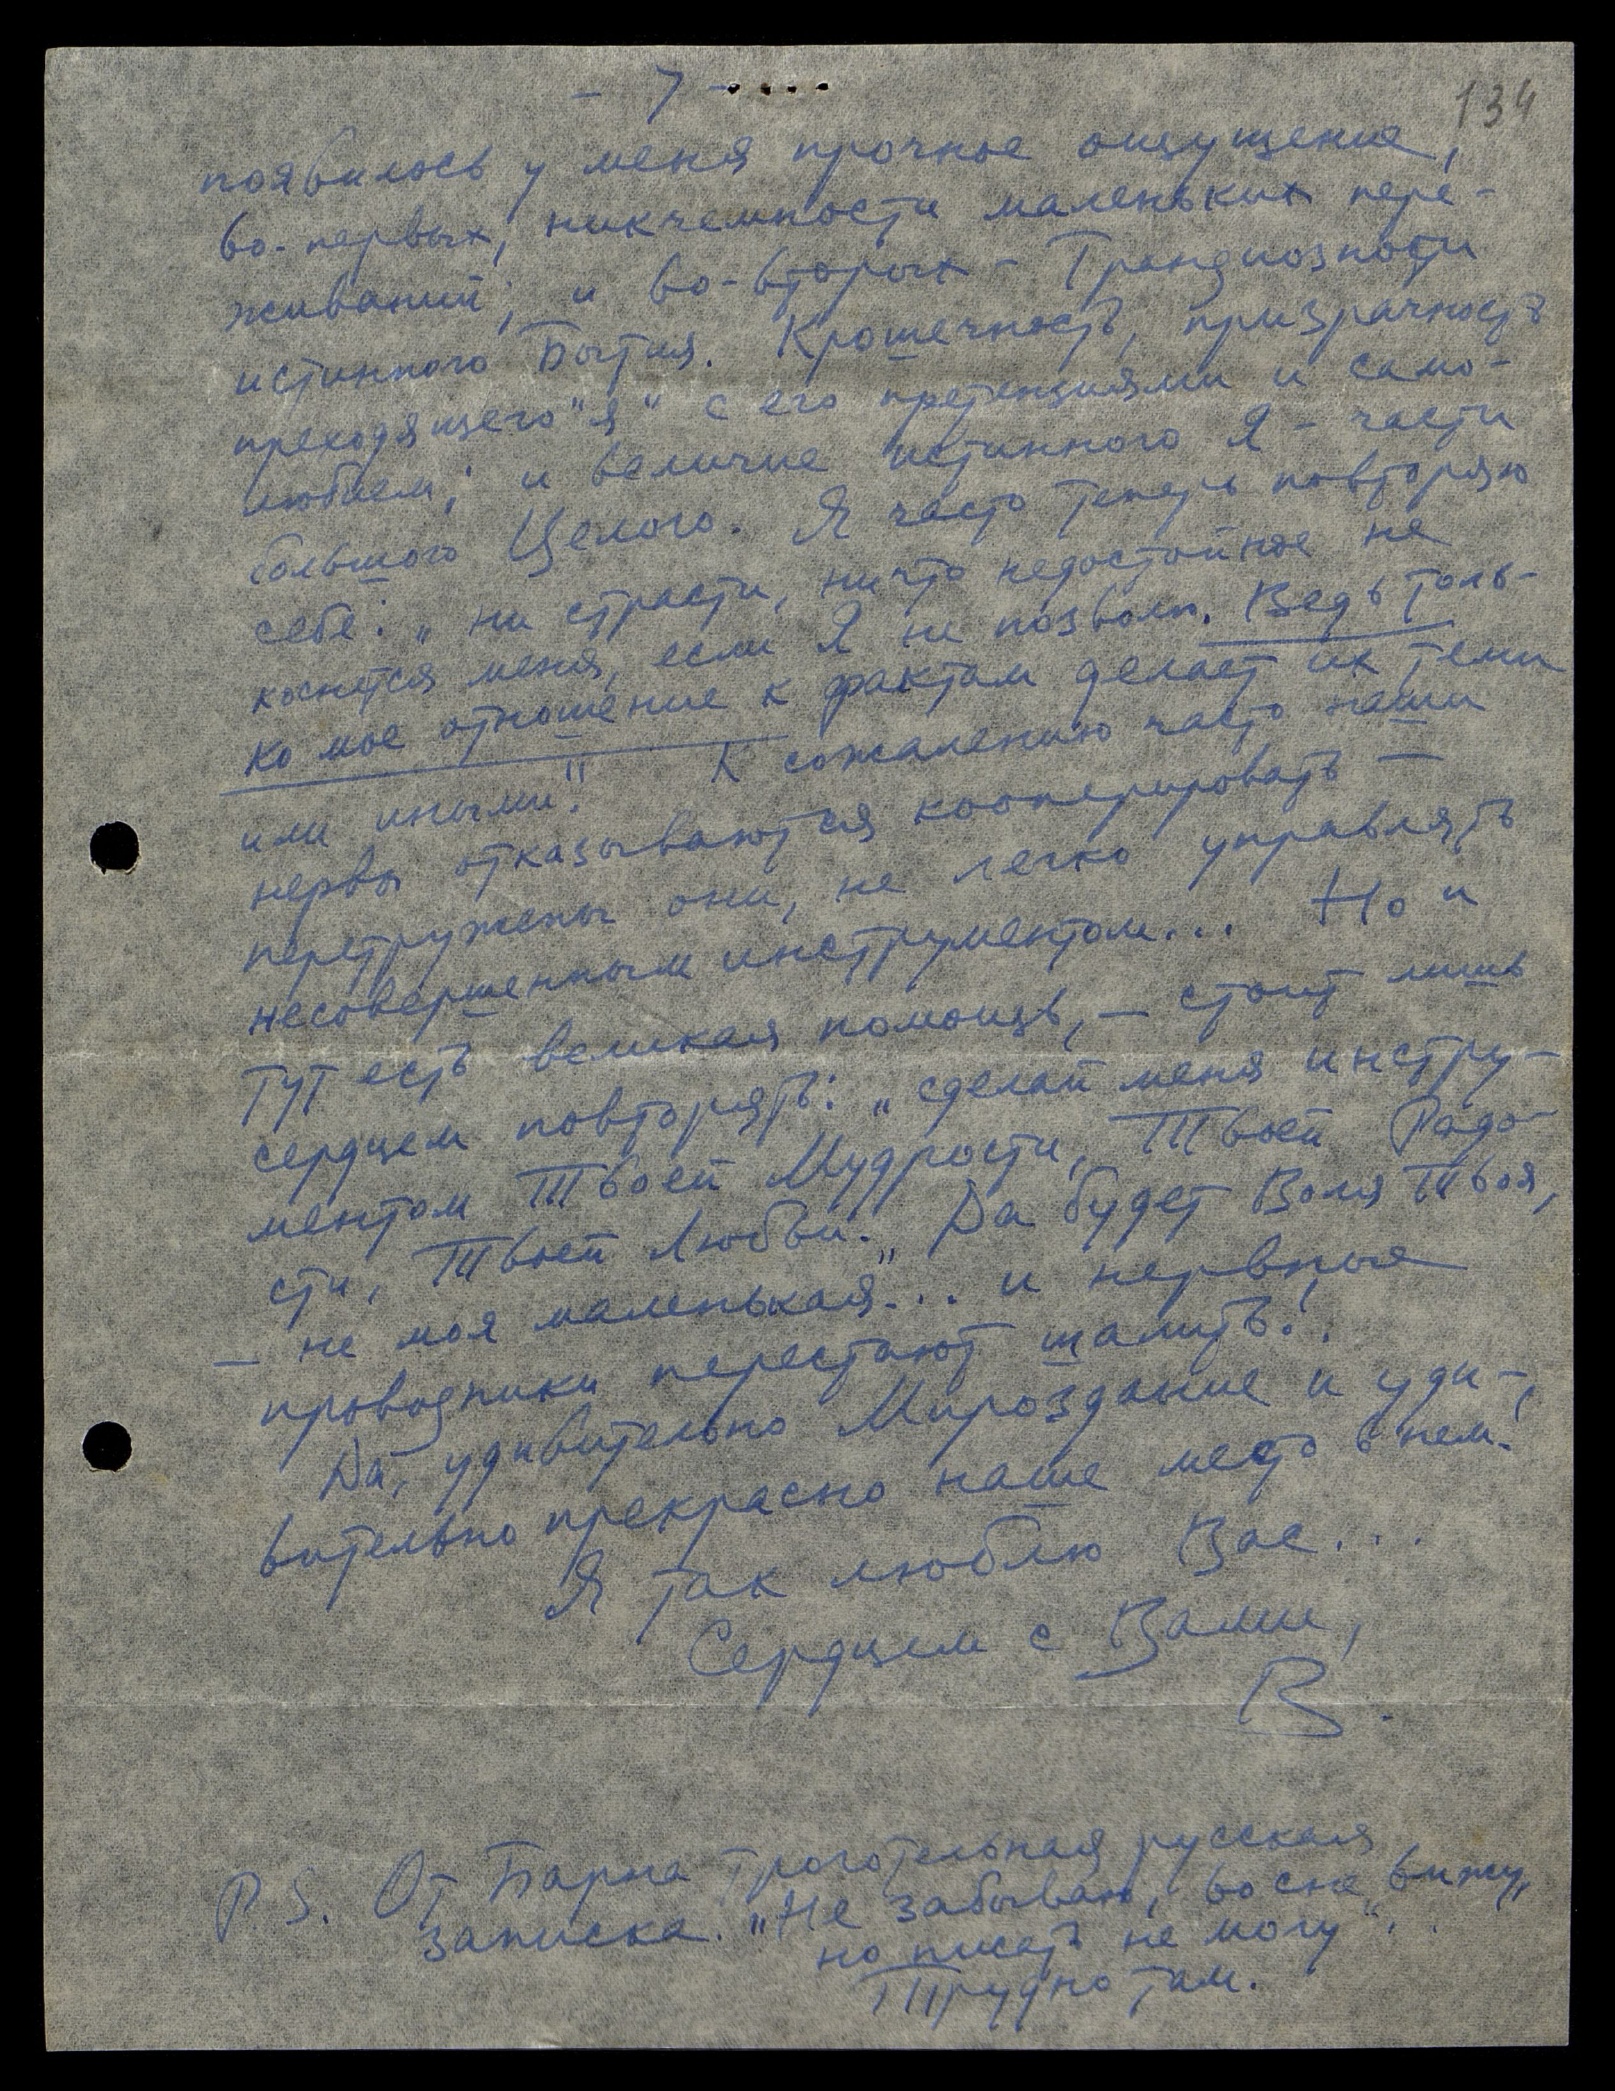 - 7 -
134
появилось у меня прочное ощущение,
во-первых, никчемности маленьких пере-
живаний; и во-вторых - Грандиозности
истинного Бытия. Крошечность, призрачность
преходящего "я" с его претензиями и само-
любием; и величие истинного Я - части
большого Целого. Я часто теперь повторяю
себе: „ни страсти, ничто недостойное не
коснется меня, если Я не позволю. Ведь толь-
ко мое отношение к фактам делает их теми
или иными." К сожалению часто наши
нервы отказываются кооперировать —
перетружены они, не легко управлять
несовершенным инструментом... Но и
тут есть великая помощь, — стоит лишь
сердцем повторять: „сделай меня инстру-
ментом Твоей Мудрости, Твоей Радо-
сти, Твоей Любви. Да будет Воля Твоя,
— не моя маленькая"... и нервные
проводники перестают шалить!.
Да, удивительно Мироздание и уди-
вительно прекрасно наше место в нем!
Я так люблю Вас...
Сердцем с Вами,
В.
P.S. От Барна трогательная русская
записка. „Не забываю, во сне вижу,
но писать не могу"..
Трудно там.